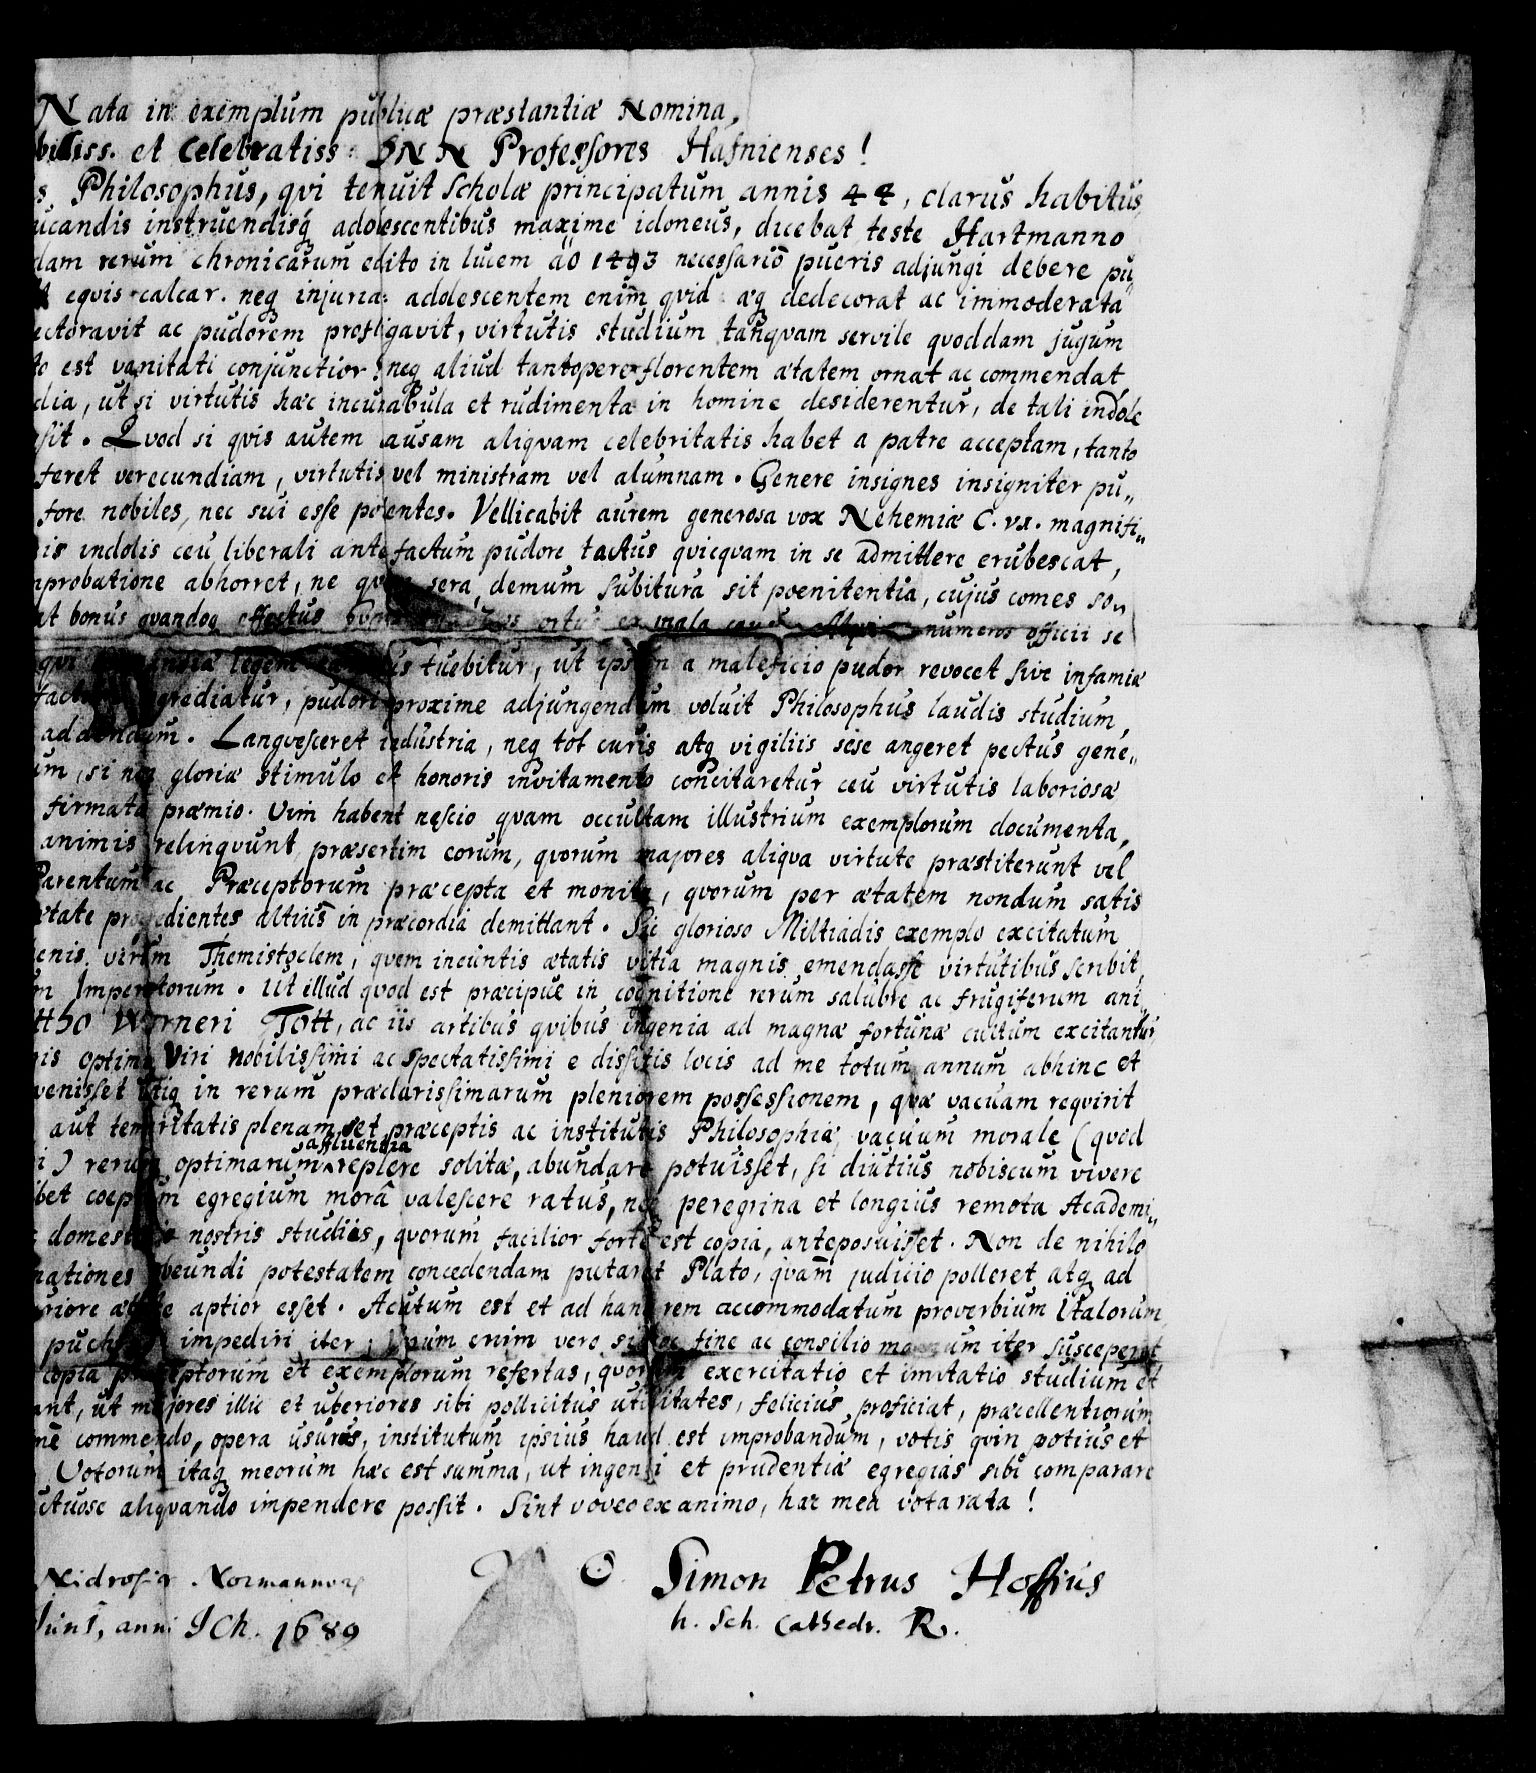 Nata in exemplum publicæ præstantiæ Nomina,
biliss. et Celebratiss: DNN Professores Hafnienses!
s Philosophus, qvi tenuit Scholæ principatum annis 44, clarus habitus,
ucandis instruendisq adolescentibus maxime idoneus, dicebat teste Hartmanno
dam rerum chronicarum edito in lucem aō 1493 necessariō pueris adjungi debere pu„
eqvis calcar. neq injuria: adolescentem enim̄ qvid æq dedecorat ac immoderata
ectoravit ac pudorem profligavit, virtutis studium tanqvam servile qvoddam jugum
to est vanitati conjunctior; neq aliud tantopere florentem ætatem ornat ac commendat
dia, ut si virtutis hæc incunabula et rudimenta in homine desiderentur, de tali indole
sit. Qvod si qvis autem causam aliqvam celebritatis habet a patre acceptam, tanto
feret verecundiam, virtutis vel ministram vel alumnam. Genere insignes insigniter pu„
fore nobiles, nec sui esse potentes. Vellicabit aurem generosa vox Nehemiæ C. vi. magnifi„
is indolis ceu liberali ante factum pudore tactus qvicqvam in se admittere erubescat,
mprobatione abhorret, ne sera demum subitura sit poenitentia, cujus comes so„
at bonus qvandoq effectus ortus ex mala numeros officii se
qvi legem tuebitur, ut ipsum a maleficio pudor revocet sive infamiæ
grediatur, pudori proxime adjungendum voluit Philosophus laudis studium,
addendum. Langvesceret industria, neq tot curis atq vigiliis sese angeret pectus gene„
um, si non gloriæ stimulo et honoris invitamento concitaretur ceu virtutis laboriosæ
firmata præmio. Vim habent nescio qvam occultam illustrium exemplorum documenta,
animis relinqvunt, præsertim eorum, qvorum majores aliqva virtute præstiterunt vel
Parentum ac Præceptorum præcepta et monita, qvorum per ætatem nondum satis
ætate progredientes altius in præcordia demittant. Sic glorioso Miltiadis exemplo excitatum
enis virum Themistoclem, qvem ineuntis ætatis vitia magnis emendasse virtutibus scribit
m Imperatorum. Ut illud qvod est præcipue in cognitione rerum salubre ac frugiferum ani„
ttho Werneri Tott, ac iis artibus qvibus ingenia ad magnæ fortunæ cultum excitantur,
is optimi Viri nobilissimi ac spectatissimi e dissitis locis ad me totum annum abhinc et
venisset utiq in rerum præclarissimarum pleniorem possessionem, qvæ vacuam reqvirit
aut temeritatis plenam, et præceptis ac institutis Philosophiæ, vacuum morale (qvod
i) rerum optimarum affluentia replere solitæ, abundare potuisset, si diutius nobiscum vivere
ibet coeptum egregium morâ valescere ratus, neq peregrina et longius remota Academi„
domesticis nostris studiis, qvorum facilior forte est copia, anteposuisset. Non de nihilo
nationes obeundi potestatem concedendam putaret Plato, qvam̄ judicio polleret atq ad
uriore ætate aptior esset. Acutum est et ad hanc rem accommodatum proverbium Italorum
impediri iter; Ipsum enim vero si hoc fine ac consilio magnum iter susceperit
copia præceptorum et exemplorum refertas, qvorum exercitatio et imitatio studium et
ant, ut majores illic et uberiores sibi pollicitus utilitates, felicius proficiat, præcellentiorum
mē commendo, opera usurus, institutum ipsius haud est improbandum, votis qvin potius et
Votorum itaq meorum hæc est summa, ut ingenii et prudentiæ egregias sibi comparare
uctuose aliqvando impendere possit. Sint voveo ex animo, hæc mea vota rata!
Nidrosiæ Normannor
Junī, anni ICh. 1689
Simon Petrus Hoffius
h. Sch. Cathedr. R.